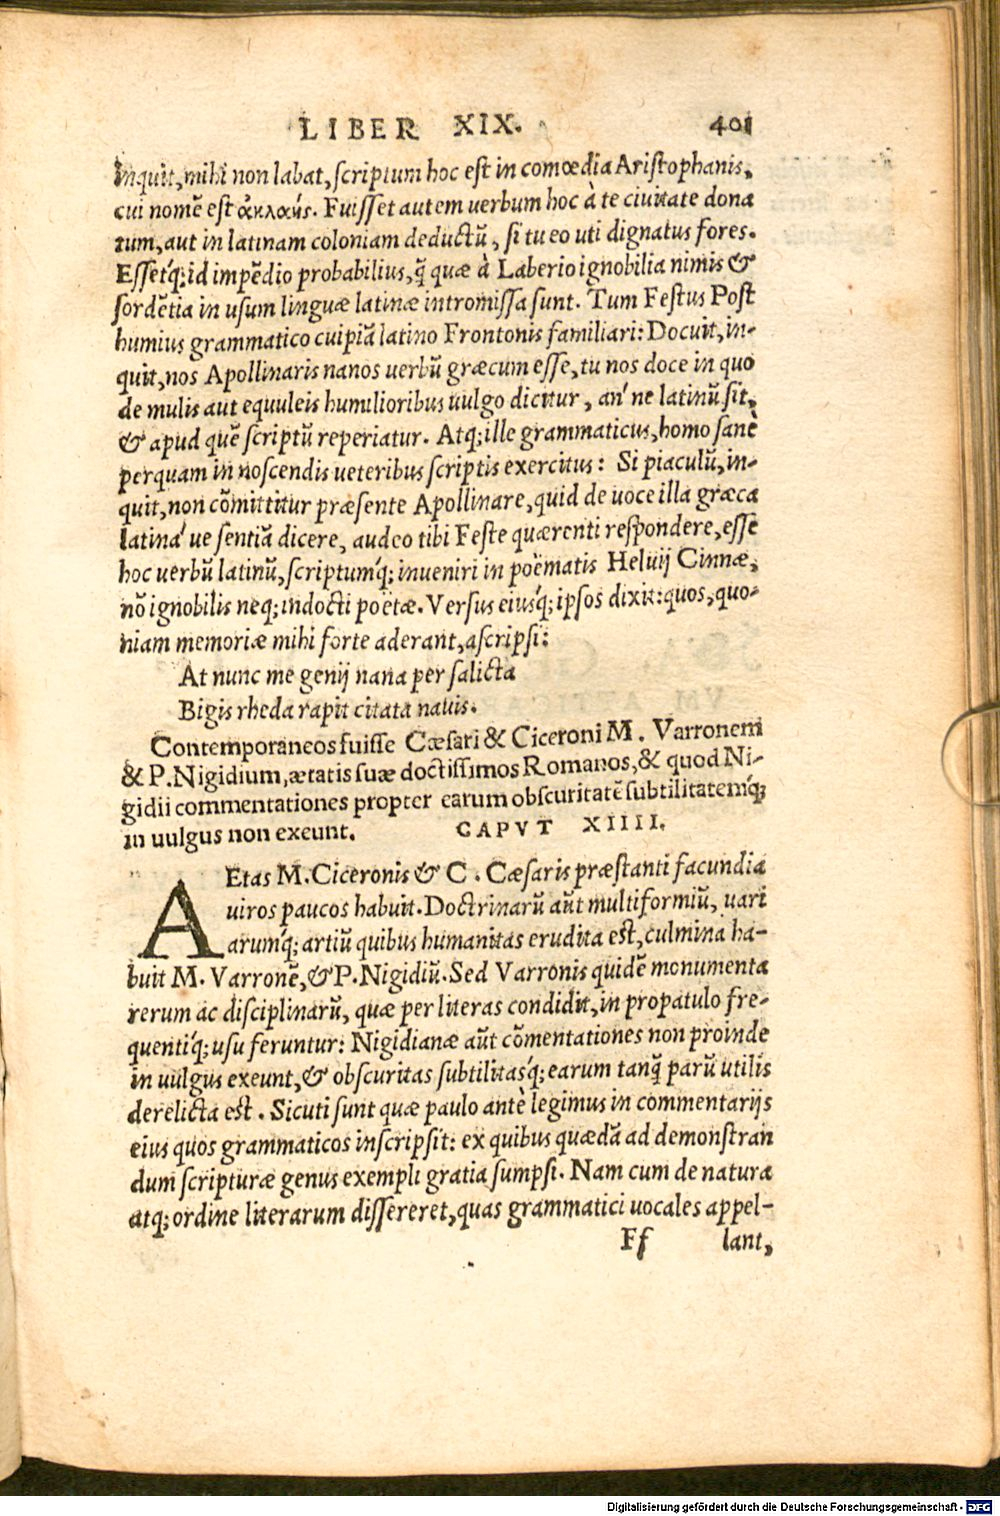 LIBER XIX. 401
Inquit, mihi non labat, scriptum hoc est in comœdia Aristophanis,
cui nomē est ἀκλαής. Fuisset autem uerbum hoc à te ciuitate dona
tum, aut in latinam coloniam deductū, si tu eo uti dignatus fores.
Essetq́; id impēdio probabilius, q̄ quæ à Laberio ignobilia nimis &
sordētia in usum linguæ latinæ intromissa sunt. Tum Festus Post
humius grammatico cuipiā latino Frontonis familiari: Docuit, in-
quit, nos Apollinaris nanos uerbū græcum esse, tu nos doce in quo
de mulis aut equuleis humilioribus uulgo dicitur, an' ne latinū sit,
& apud quē scriptū reperiatur. Atq; ille grammaticus, homo sanè
perquam in noscendis ueteribus scriptis exercitus: Si piaculū, in-
quit, non cōmittitur præsente Apollinare, quid de uoce illa græca
latina' ue sentiā dicere, audeo tibi Feste quærenti respondere, esse
hoc uerbū latinū, scriptumq́; inueniri in poëmatis Heluij Cinnæ,
nō ignobilis neq; indocti poëtæ. Versus eiusq́; ipsos dixit: quos, quo-
niam memoriæ mihi forte aderant, ascripsi:
At nunc me genij nana per salicta
Bigis rheda rapit citata nauis.
Contemporaneos fuisse Cæsari & Ciceroni M. Varronem
& P. Nigidium, ætatis suæ doctissimos Romanos, & quod Ni-
gidii commentationes propter earum obscuritatē subtilitatemq́;
in uulgus non exeunt. CAPVT XIIII.
AEtas M. Ciceronis & C. Cæsaris præstanti facundia
uiros paucos habuit. Doctrinarū aūt multiformiū, uari
arumq́; artiū quibus humanitas erudita est, culmina ha-
buit M. Varronē, & P. Nigidiū. Sed Varronis quidē monumenta
rerum ac disciplinarū, quæ per literas condidit, in propatulo fre-
quentiq́; usu feruntur: Nigidianæ aūt cōmentationes non proinde
in uulgus exeunt, & obscuritas subtilitasq́; earum tanq̄ parū utilis
derelicta est. Sicuti sunt quæ paulo antè legimus in commentarijs
eius quos grammaticos inscripsit: ex quibus quædā ad demonstran
dum scripturæ genus exempli gratia sumpsi. Nam cum de natura
atq; ordine literarum dissereret, quas grammatici uocales appel-
Ff lant,
Digitalisierung gefördert durch die Deutsche Forschungsgemeinschaft - DFG